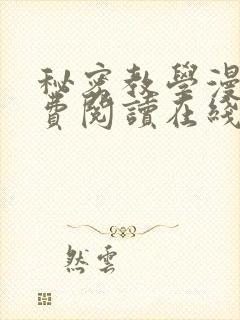 秘密教學漫
費閱讀在綫
然雲